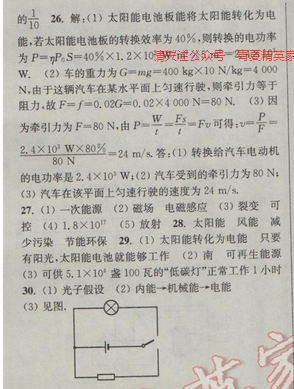 的1/10 26. 解:(1)太阳能电池板能将太阳能转化为电
能,若太阳能电池板的转换效率为 40%,则转换的功率
为 P=ηP₀S=40%×1.2×10³ W
W. (2)车的重力为 G=mg=400 kg×10 N/kg=4 000
N,由于这辆汽车在某水平面上匀速行驶,则牵引力等于
阻力,故 F=f=0.02G=0.02×4 000 N=80 N. (3)因
为牵引力为 F=80 N,由 P=W/t=Fs/t=Fv 可得:v=P/F=
2.4×10³ W×80%/80 N=24 m/s. 答:(1)转换给汽车电动机
的电功率是 2.4×10³ W;(2)汽车受到的牵引力为 80 N;
(3)汽车在该平面上匀速行驶的速度为 24 m/s.
27. (1)一次能源 (2)磁场 电磁感应 (3)裂变 可
控 (4)1.8×10¹⁷ (5)放射 28. 太阳能 风能 减
少污染 节能环保 29. (1)太阳能转化为电能 只要
有阳光,太阳能电池就能够工作 (2)南 可再生能源
(3)可供 5.1×10⁴ 盏 100 瓦的“低碳灯”正常工作 1 小时
30. (1)光子假设 (2)内能→机械能→电能
(3)见图.